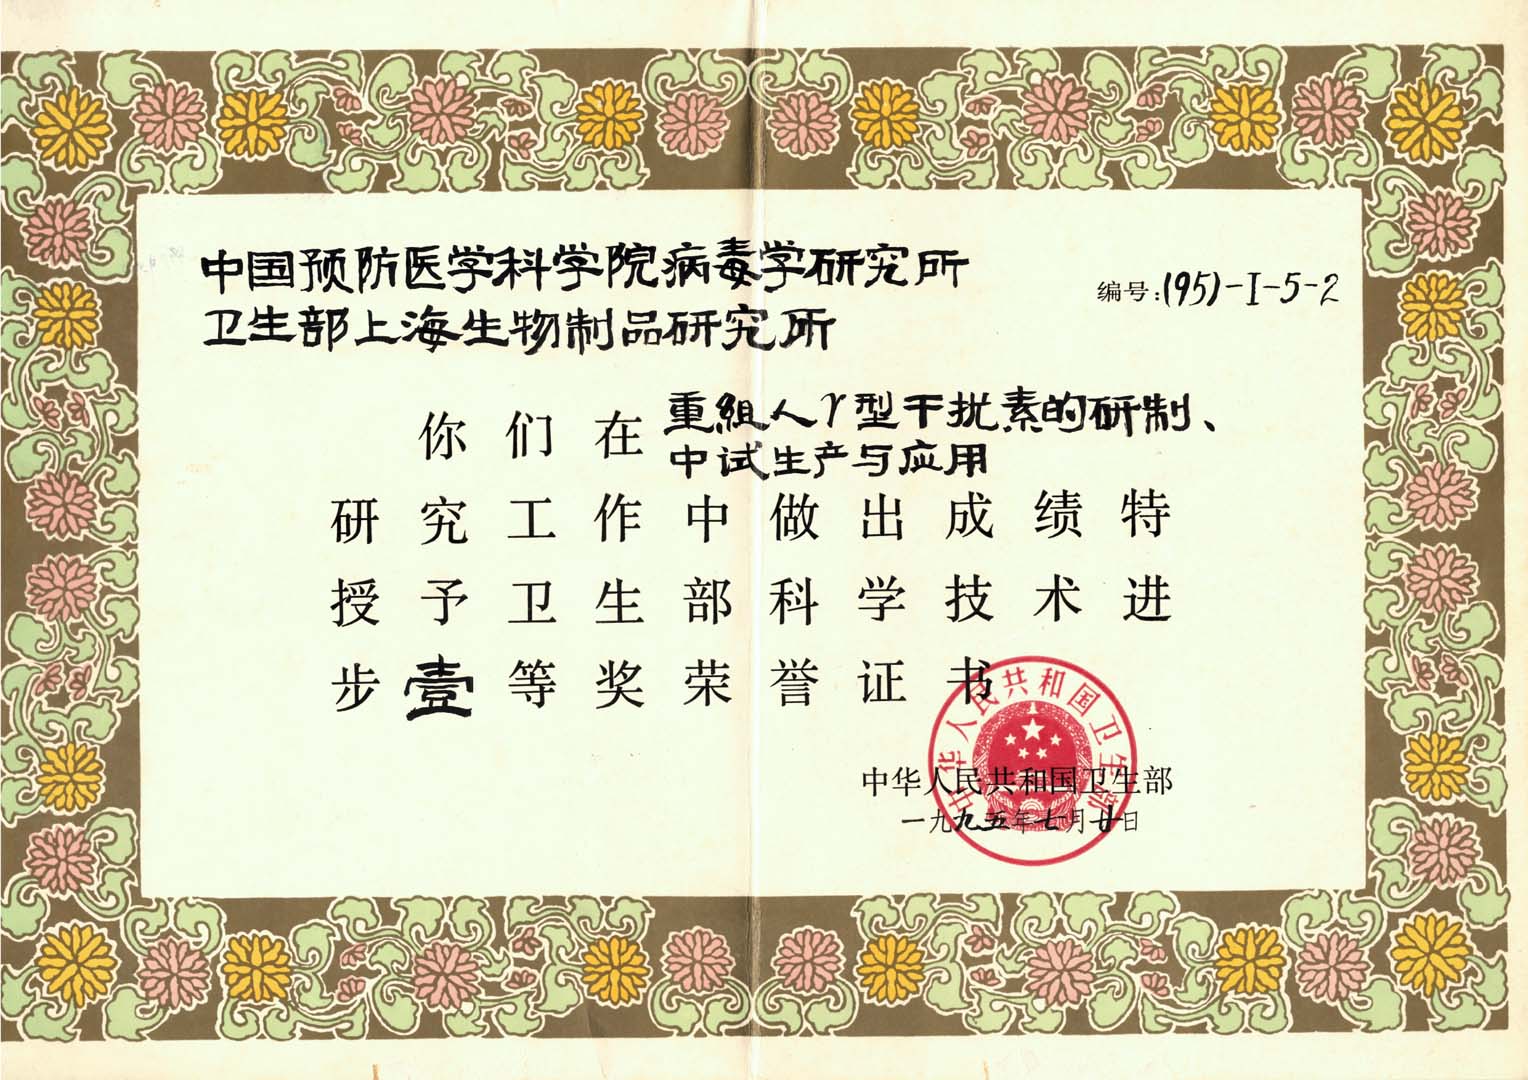 中国预防医学科学院病毒学研究所
编号:(95)-I-5-2
卫生部上海生物制品研究所
你们在重組人γ型干扰素的研制、
中试生产与应用
研究工作中做出成绩特
授予卫生部科学技术进
步壹等奖荣誉证书
中华人民共和国卫生部
中华人民共和国卫生部
一九九五年七月廿日